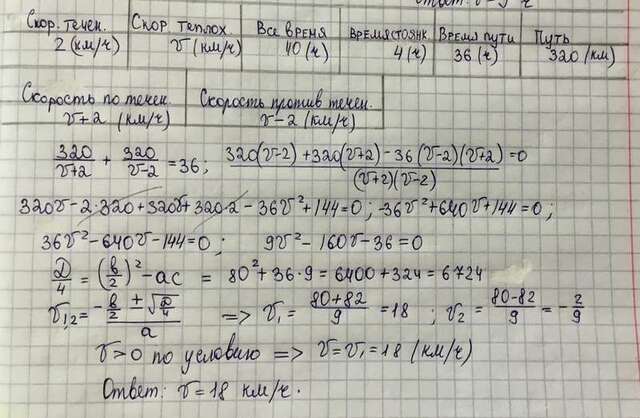 Ответ: v=
Скор. течен. Скор. теплох Все время Время стоянк. Время пути Путь
2 (км/ч) v (км/ч) 40 (ч) 4 (ч) 36 (ч) 320 (км)
Скорость по течен. Скорость против течен.
v+2 (км/ч) v-2 (км/ч)
320/(v+2) + 320/(v-2) = 36; (320(v-2)+320(v+2)-36(v-2)(v+2))/((v+2)(v-2)) = 0
320v-2·320+320v+320·2-36v²+144=0; -36v²+640v+144=0;
36v²-640v-144=0; 9v²-160v-36=0
D/4 = (b/2)²-ac = 80²+36·9=6400+324=6724
v1,2 = (-b/2 ± √(D/4))/a => v1 = (80+82)/9 = 18; v2 = (80-82)/9 = -2/9
v>0 по условию => v=v1=18 (км/ч)
Ответ: v=18 км/ч.